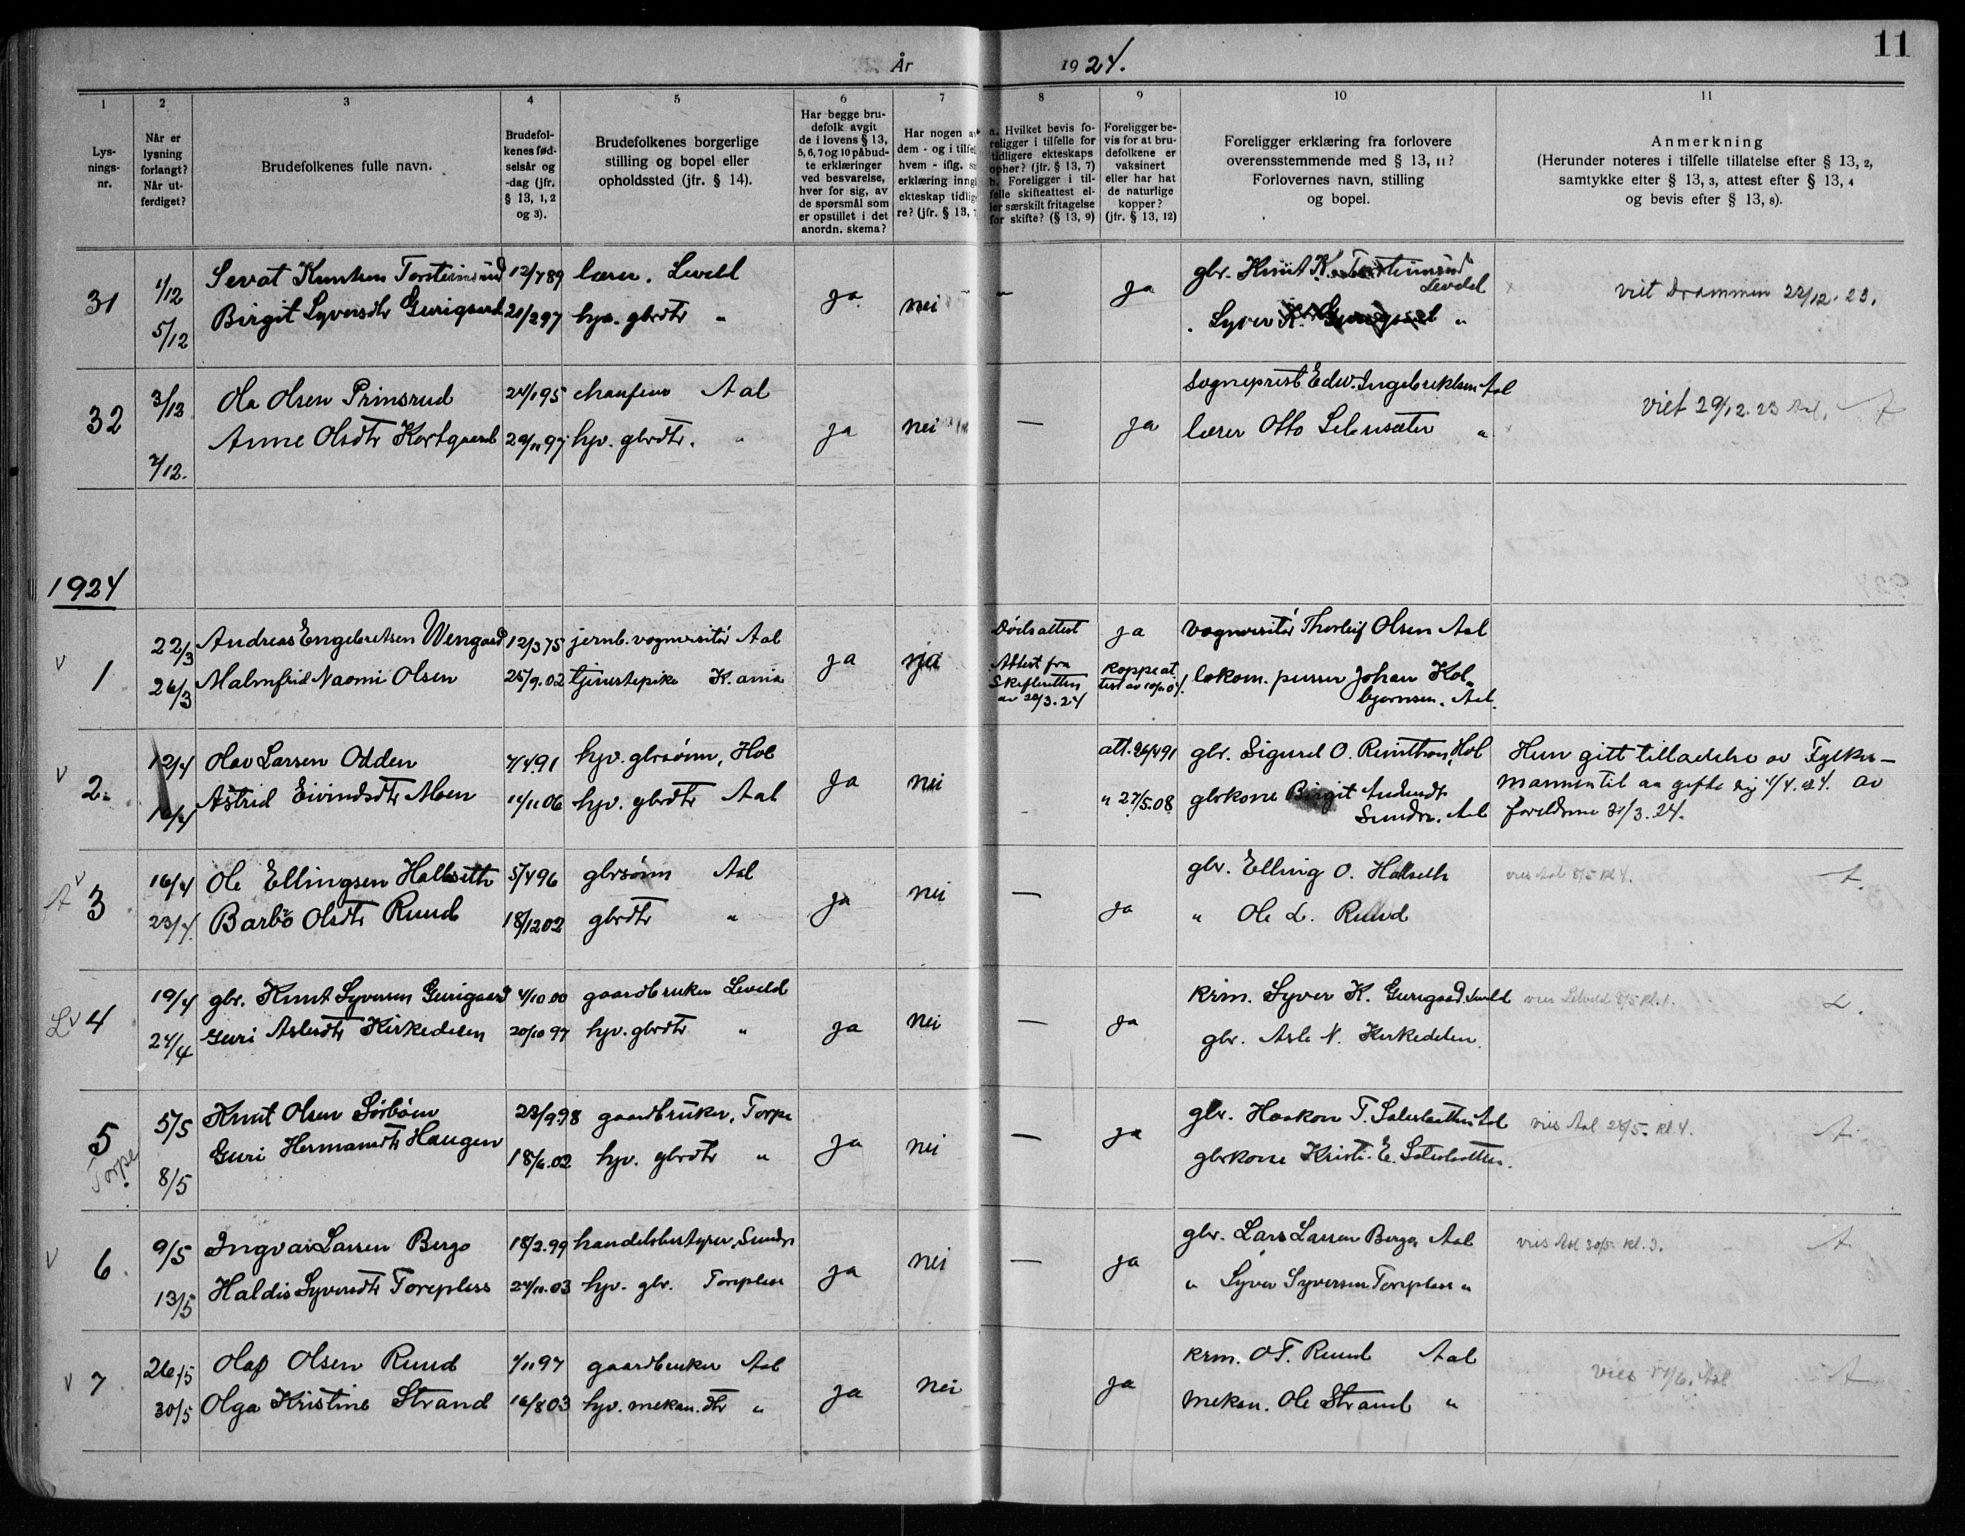 11
År 1924.
1 2 3 4 5 6 7 8 9 10 11
Lys-
nings-
nr.
Når er
lysning
forlangt?
Når ut-
ferdiget?
Brudefolkenes fulle navn.
Brudefol-
kenes fød-
selsår og
-dag (jfr.
§ 13, 1, 2
og 3).
Brudefolkenes borgerlige
stilling og bopel eller
opholdssted (jfr. § 14).
Har begge bru-
defolk avgit
de i lovens § 13,
5, 6, 7 og 10 påbud-
te erklæringer
ved besvarelse,
hver for sig, av
de spørsmål som
er opstillet i det
anordn. skema?
Har nogen av
dem - og i tilfel
hvem - iflg. s
erklæring inng
ekteskap tidlig
re? (jfr. § 13, 7
a. Hvilket bevis fo-
religger i tilfelle for
tidligere ekteskaps
ophør? (jfr. § 13, 7)
b. Foreligger i til-
felle skifteattest el-
ler særskilt fritagelse
for skifte? (§ 13, 9)
Foreligger be-
vis for at bru-
defolkene er
vaksinert
eller har hat
de naturlige
kopper?
(jfr. § 13, 12)
Foreligger erklæring fra forlovere
overensstemmende med § 13, 11?
Forlovernes navn, stilling
og bopel.
Anmerkning
(Herunder noteres i tilfelle tillatelse efter § 13, 2,
samtykke efter § 13, 3, attest efter § 13, 4
og bevis efter § 13, 8).
31 1/12 Sevat Knutsen Torsteinsrud 12/7 89 lærer. Leveld ja nei " ja glr. Knut K. Torsteinsrud Leveld viet Drammen 22/12. 23.
5/12 Birgit Syversdtr Gurigaard 21/2 97 hjv. gbrdtr " Syver K. Gurigaard "
32 3/12 Ola Olsen Prinsrud 24/1 95 chaufeur Aal ja nei — ja Sogneprest Edw. Ingebrektsen Aal viet 29/12. 23 Aal. A
7/12. Anne Olsdtr Kortgaard 20/11 97 hjv. gbrdtr. " lærer Otto "
1924
v 1 22/3 Andreas Engebretsen Wengaard 12/3 75 jernb. vognvisitør Aal ja Dødsattest ja vognvisitør Thorleif Olsen Aal
26/3 Malmfrid Naomi Olsen 25/9. 02 tjenestepike K.ania Attest fra
Skifteretten
av 20/3. 24 koppeat
test av lokom. pusser Johan Kol-
bjørnsen. Aal.
v 2. 12/4 Olav Larsen Odden 7/4 91 hjv. gbrsønn, Hol ja nei att. 26/4 91 gbr. Sigurd O. Hol Hun gitt tilladelse av Fylkes-
mannen til aa gifte sig 4/4. 24. av
foreldrene 31/3. 24.
16/4 Astrid Eivindsdtr Moen 14/11 06 hjv. gbrdtr Aal " 27/5. 08 gbrkone Birgit
Sundre. Aal
A v 3 16/4 Ole Ellingsen Hallseth 5/4 96 gbrsønn Aal ja nei — ja gbr. Elling O. Halseth vies Aal 8/5 kl 4. A.
23/4. Barbo Olsdtr Ruud 18/12 02 gbrdtr " " Ole L. Ruud
Lv 4 19/4 gbr. Knut Syversen Gurigaard 4/10 00 gaardbruker Leveld ja nei — ja krm. Syver K. Gurigaard. Leveld vies Leveld 8/5 kl. 1. L.
24/4 Guri Aslesdtr Kirkedelen 20/10 97 hjv. gbrdtr " gbr. Asle N. Kirkedelen.
5 Torpe 5/5 Knut Olsen Sørbøen 23/9. 98 gaardbruker, Torpe ja nei — ja gbr. Haakon T. Aal vies Aal 28/5. kl. 4. A.
8/5 Guri Hermansdtr Haugen 18/6. 02 hjv. gbrdtr " gbrkone Kristi. E.
v 6. 9/5 Ingvar Larsen Bergo 18/2. 99 handelsbestyrer, Sundre ja nei — ja gbr. Lars Larsen Bergo Aal vies Aal 20/5. kl. 3. A
13/5 Haldis Syversdtr Torepless 24/11. 03 hjv. gbr. Torepless " Syver Syversen Torepless "
v 7. 26/5 Olaf Olsen Ruud 7/11 97 gaardbruker Aal ja nei ja krm. O T. Ruud Aal vies Aal A
30/5 Olga Kristine Strand 16/8 03 hjv. mekan. dtr " mekan. Ole Strand "